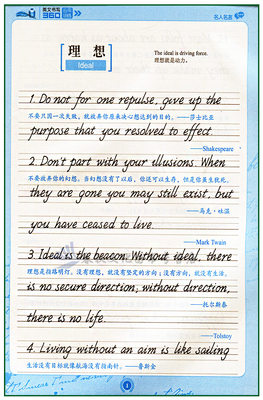 英文书写
360
名人名言
理 想
Ideal
The ideal is driving force.
理想就是动力。
1. Do not for one repulse, give up the
不要只因一次失败，就放弃你原来决心想达到的目的。——莎士比亚
purpose that you resolved to effect.
—Shakespeare
2. Don't part with your illusions. When
不要放弃你的幻想。当幻想没有了以后，你还可以生存，但是你虽生犹死。
they are gone you may still exist, but
——马克·吐温
you have ceased to live.
—Mark Twain
3. Ideal is the beacon. Without ideal, there
理想是指路明灯。没有理想，就没有坚定的方向；没有方向，就没有生活。
is no secure direction, without direction,
——托尔斯泰
there is no life.
—Tolstoy
4. Living without an aim is like sailing
生活没有目标就像航海没有指南针。——鲁斯金
1